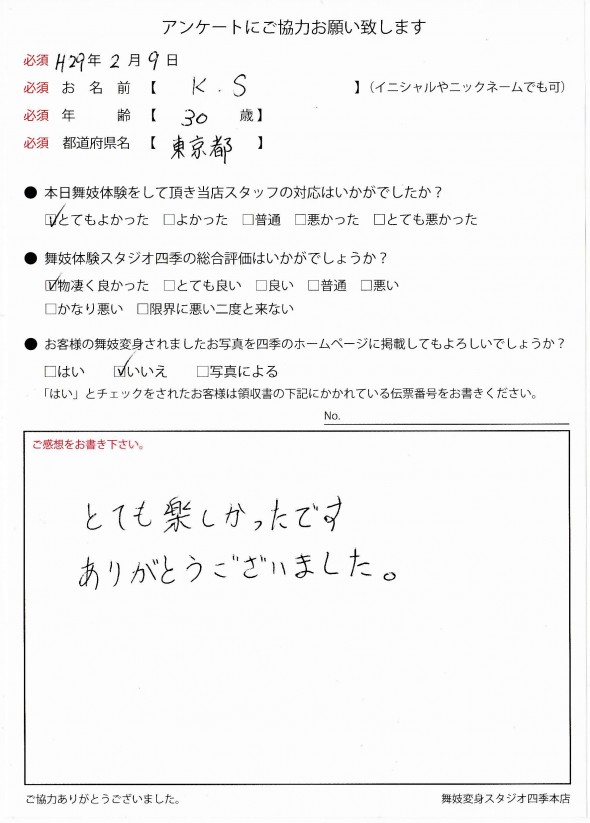 アンケートにご協力お願い致します
必須 H29年 2月 9日
必須 お名前【 K.S 】（イニシャルやニックネームでも可）
必須 年齢【 30 歳】
必須 都道府県名【 東京都 】
● 本日舞妓体験をして頂き当店スタッフの対応はいかがでしたか？
☑とてもよかった □よかった □普通 □悪かった □とても悪かった
● 舞妓体験スタジオ四季の総合評価はいかがでしょうか？
☑物凄く良かった □とても良い □良い □普通 □悪い
□かなり悪い □限界に悪い二度と来ない
● お客様の舞妓変身されましたお写真を四季のホームページに掲載してもよろしいでしょうか？
□はい ☑いいえ □写真による
「はい」とチェックをされたお客様は領収書の下記にかかれている伝票番号をお書きください。
No.
ご感想をお書き下さい。
とても楽しかったです
ありがとうございました。
ご協力ありがとうございました。 舞妓変身スタジオ四季本店